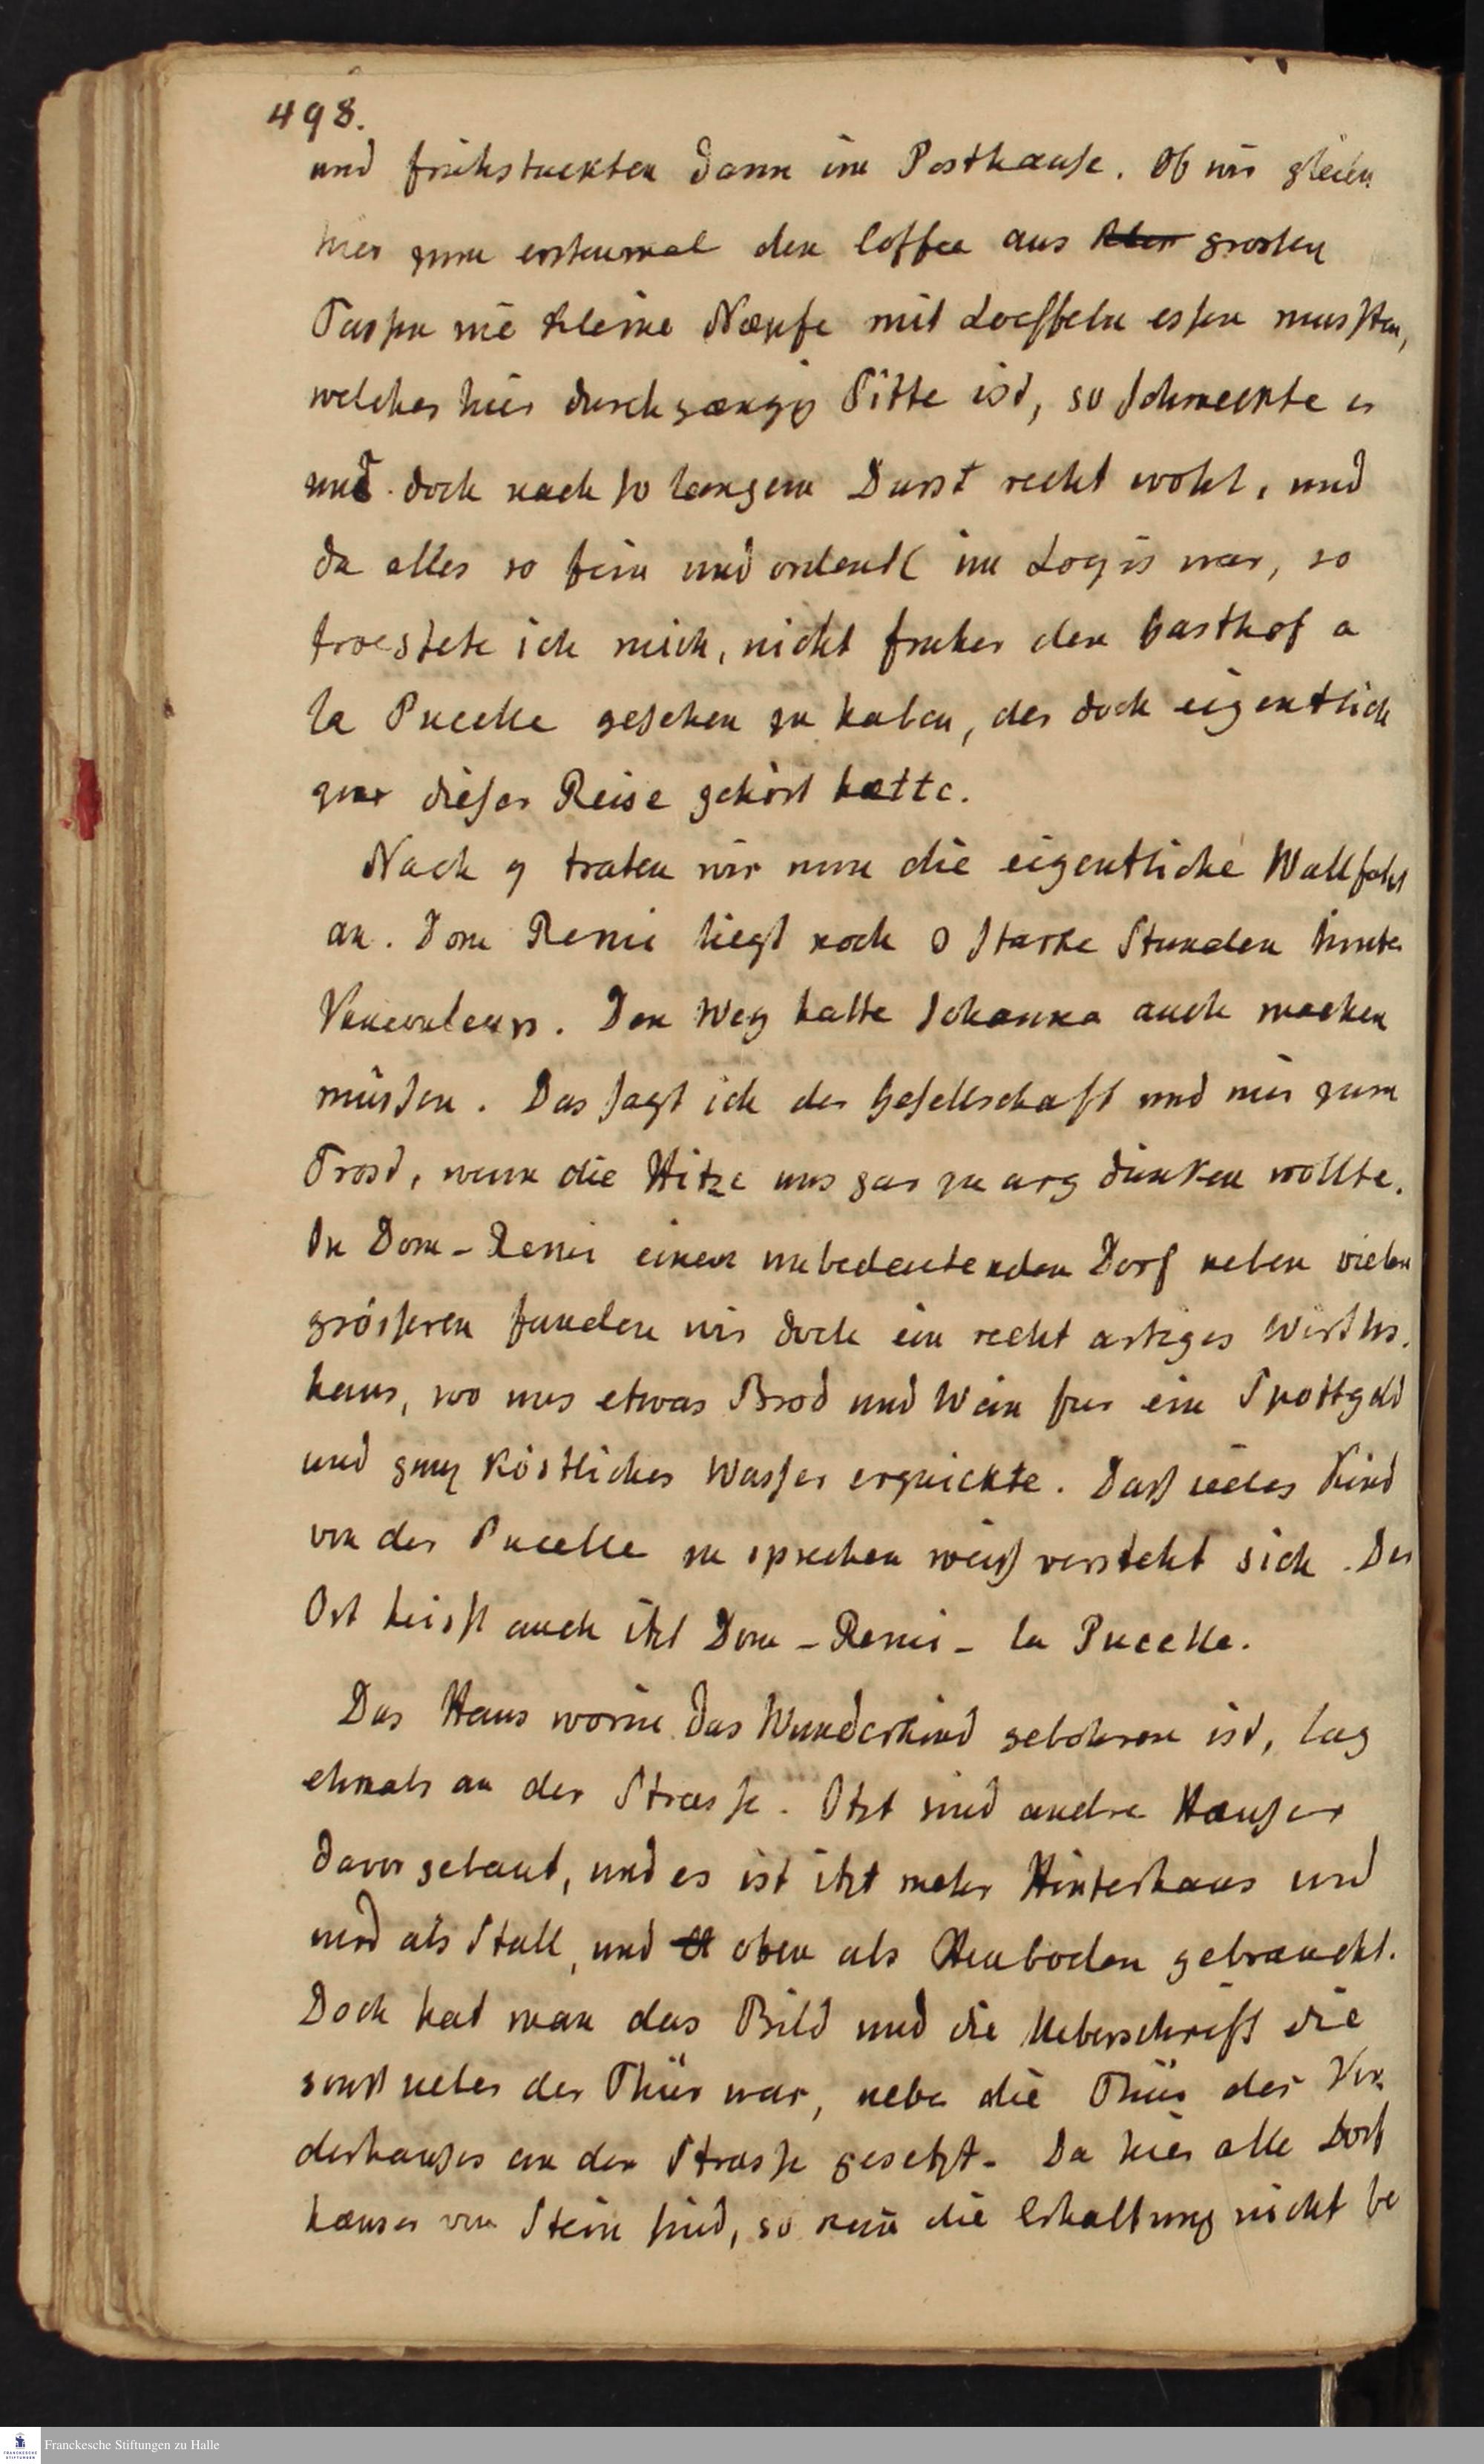 498.
und frühstuckten dann im Posthause. Ob wir gleich
hier zum erstenmal den Coffee aus grossen
Tassen wie kleine Næpfe mit Loeffeln essen mussten,
welches hier durchgængig Sitte ist, so schmeckte er
uns doch nach so langem Durst recht wohl, und
da alles so fein und ordentl im Logis war, so
troestete ich mich, nicht fruher den Gasthof a
la Pucelle gesehen zu haben, der doch eigentlich
zur dieser Reise gehört hætte.
Nach 9 traten wir nun die eigentliche Wallfahrt
an. Dom Remi liegt noch starke Stunden hinter
Vaucouleurs. Den Weg hatte Johanna auch machen
müssen. Das sagt ich der Gesellschaft und mir zum
Trost, wenn die Hitze uns gar zu arg dünken wollte.
In Dom-Remi einem unbedeutenden Dorf neben vielen
grösseren fanden wir doch ein recht artiges Wirths-
haus, wo uns etwas Brod und Wein fur ein Spottgeld
und ganz köstliches Wasser erquickte. Daß iedes Kind
von der Pucelle zu sprechen weiß versteht sich. Der
Ort heisst auch itzt Dom-Remi-la Pucelle.
Das Haus worin das Wunderkind gebohren ist, lag
ehmals an der Strasse. Itzt sind andre Hæuser
davor gebaut, und es ist itzt mehr Hinterhaus und
wird als Stall, und oben als Heuboden gebraucht.
Doch hat man das Bild und die Ueberschrift die
sonst ueber der Thür war, ueber die Thür des Vor-
derhauses an der Strasse gesetzt. Da hier alle Dorf
hæuser von Stein sind, so kañ die Erhaltung nicht be
Franckesche Stiftungen zu Halle